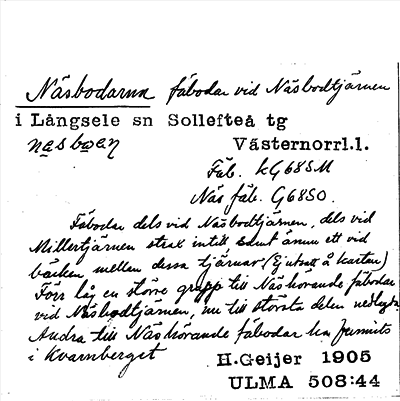 Näsbodarna fäbodar vid Näsbodtjärnen
i Långsele sn Sollefteå tg
Västernorrl.l.
Fäb. kG68SM
Näs fäb. G68SO.
Fäbodar dels vid Näsbodtjärnen, dels vid
Millertjärnen strax intill samt ännu ett vid
bäcken mellan dessa tjärnar (Ej utsatt å kartan)
Förr låg en större grupp till Näs hörande fäbodar
vid Näsbodtjärnen, nu till största delen nedlagda.
Andra till Näs hörande fäbodar ha funnits
i Kvarnberget
H.Geijer 1905
ULMA 508:44